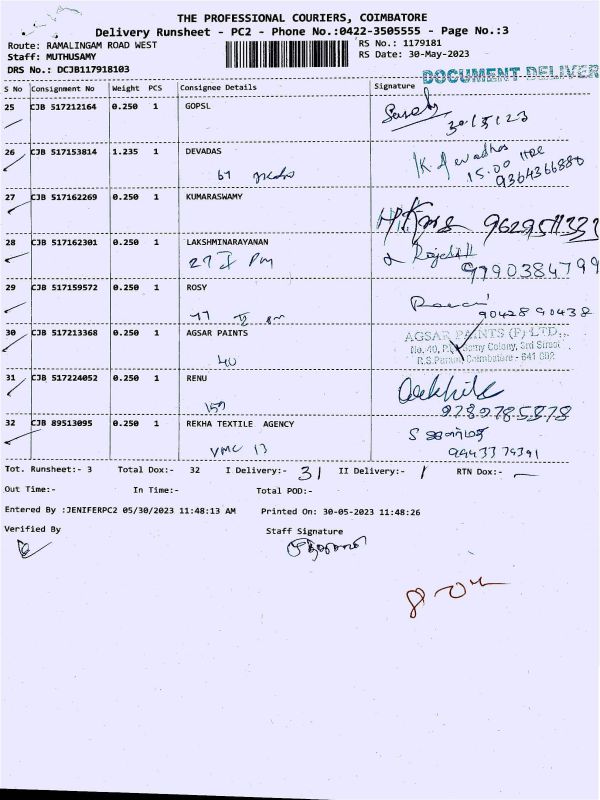 THE PROFESSIONAL COURIERS, COIMBATORE
Delivery Runsheet - PC2 - Phone No.:0422-3505555 - Page No.:3
Route: RAMALINGAM ROAD WEST RS No.: 1179181
Staff: MUTHUSAMY RS Date: 30-May-2023
DRS No.: DCJB117918103
DOCUMENT DELIVER
S No Consignment No Weight PCS Consignee Details Signature
25 CJB 517212164 0.250 1 GOPSL
30/5/23
26 CJB 517153814 1.235 1 DEVADAS
15.00
9364366880
27 CJB 517162269 0.250 1 KUMARASWAMY
9629511333
28 CJB 517162301 0.250 1 LAKSHMINARAYANAN
27 I Pm
9790384799
29 CJB 517159572 0.250 1 ROSY
77 II
9042890438
30 CJB 517213368 0.250 1 AGSAR PAINTS
AGSAR PAINTS (P) LTD.,
40
31 CJB 517224052 0.250 1 RENU
159
9789785878
32 CJB 89513095 0.250 1 REKHA TEXTILE AGENCY
VMC 13
9443379391
Tot. Runsheet:- 3 Total Dox:- 32 I Delivery:- 31 II Delivery:- 1 RTN Dox:- —
Out Time:- In Time:- Total POD:-
Entered By :JENIFERPC2 05/30/2023 11:48:13 AM Printed On: 30-05-2023 11:48:26
Verified By Staff Signature